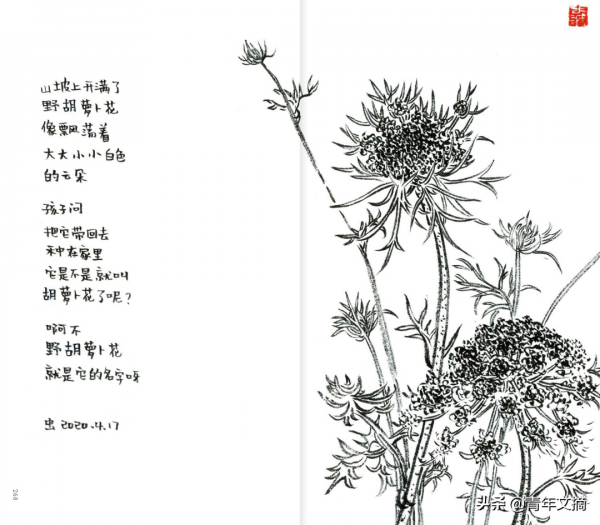 山坡上开满了
野胡萝卜花
像飘荡着
大大小小白色
的云朵
孩子问
把它带回去
种在家里
它是不是就叫
胡萝卜花了呢？
啊不
野胡萝卜花
就是它的名字呀
虫 2020.4.17
268
头条 @青年文摘